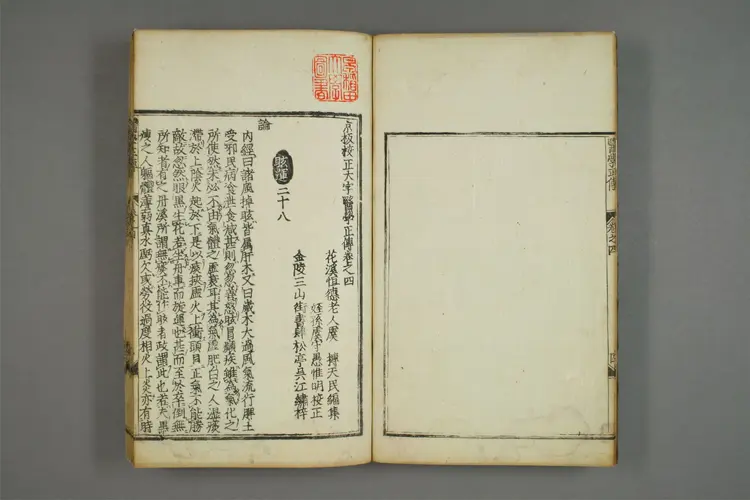 京板校正大字醫學正傳卷之四
花溪恒德老人虞 摶天民編集
姪孫虞守愚惟明校正
金陵三山街書肆松亭吳江繡梓
眩運二十八
論
内經曰諸風掉眩皆屬肝木又曰歲木太過風氣流行脾土
受邪民病飧泄食減甚則忽忽善怒眩冒巔疾雖爲氣化之
所使然未必不由氣體之虛衰耳其爲氣虛肥白之人濕痰
滯於上陰火起於下是以痰挾虛火上衝頭目正氣不能勝
敵故忽然眼黑生花若坐舟車而旋運也甚而至於卒倒無
所知者有之丹溪所謂無痰不能作眩者政謂此也若夫黑
瘦之人軀體薄弱真水虧欠或勞役過度相火上炎亦有時
卷之四